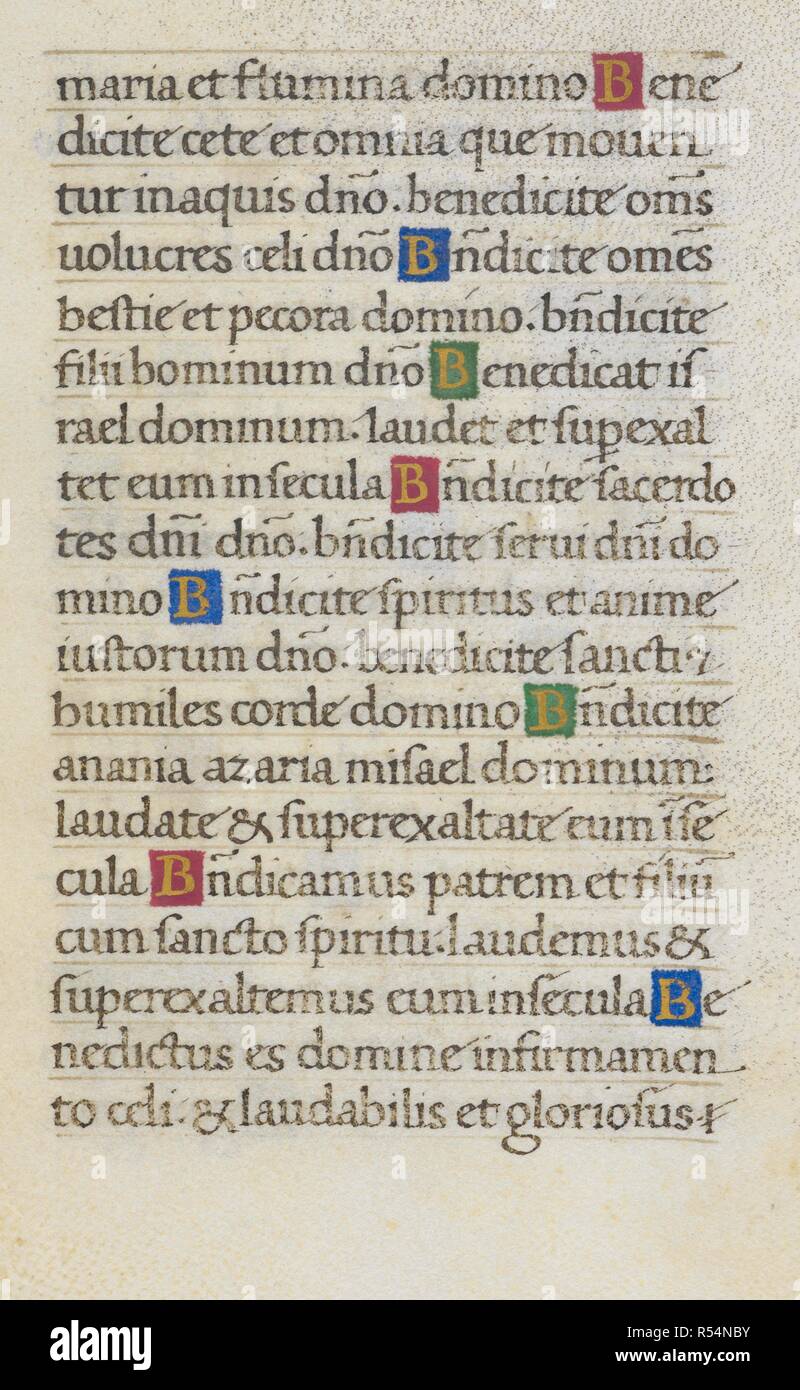 maria et flumina domino Bene
dicite cete et omnia que mouen
tur in aquis dn̄o. benedicite om̄s
uolucres celi dn̄o Bn̄dicite omēs
bestie et pecora domino. bn̄dicite
filii hominum dn̄o Benedicat iſ
rael dominum. laudet et ſuperexal
tet eum in ſecula Bn̄dicite ſacerdo
tes dn̄i dn̄o. bn̄dicite ſerui dn̄i do
mino Bn̄dicite ſpiritus et anime
iuſtorum dn̄o. benedicite ſancti ⁊
humiles corde domino Bn̄dicite
anania azaria miſael dominum:
laudate & ſuperexaltate eum ī ſe
cula Bn̄dicamus patrem et filiū
cum ſancto ſpiritu. laudemus &
ſuperexaltemus eum in ſecula Be
nedictus es domine in firmamen
to celi. & laudabilis et glorioſus ⁊
alamy
Image ID: R54NBY
www.alamy.com